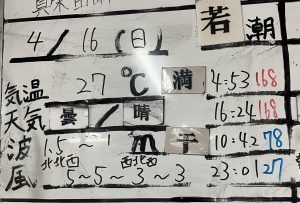 4/16(日) 若潮
気温 27℃ 満 4:53 168
天気 曇/晴 16:24 168
波 1.5~1m 干 10:42 78
北北西 西北西
風 5~5~3~3 23:01 27